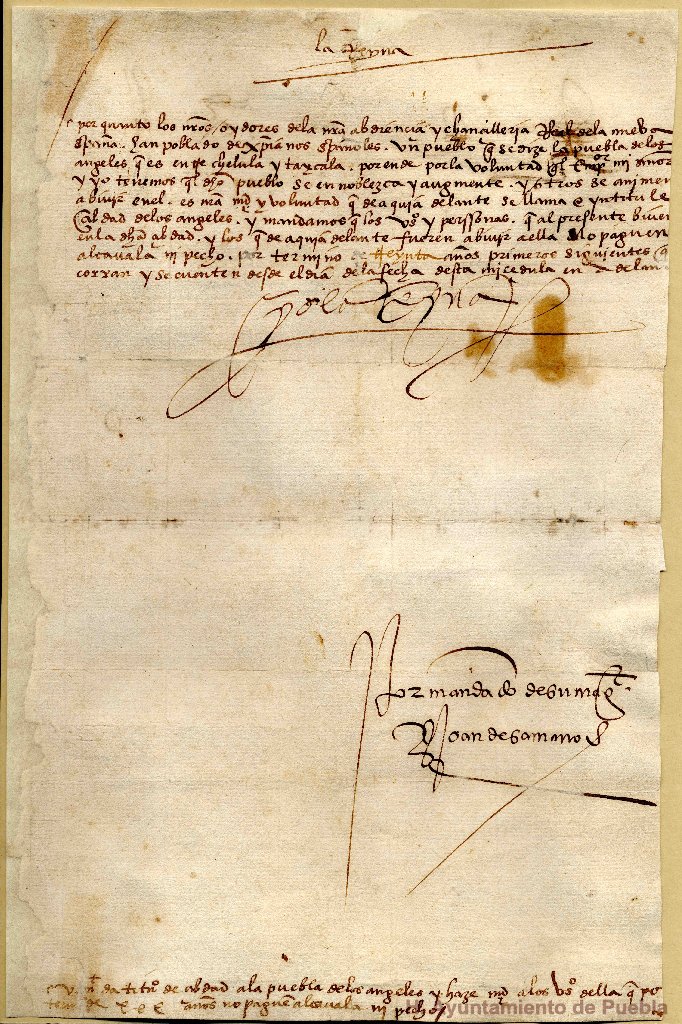 la Reyna
por quanto los nros oydores de la nra abdiencia y chancilleria Real de la nueva
españa. han poblado de xpianos españoles. un pueblo q se dize la puebla de los
angeles q es entre chelula y taxcala. por ende por la voluntad ql empor mi señor
y yo tenemos ql dho pueblo se ennoblezca y augmente. y otros se animen
a bivir en el. es nra md y voluntad q de aqui a delante se llame e yntitule
cibdad de los angeles. y mandamos q los vos y perssonas. q al presente biven
en la dha cibdad. y los q de aqui a delante fueren a bivir a ella no paguen
alcavala ni pecho. por termino de treynta años primeros siguientes q
corran y se cuenten desde el dia de la fecha desta mi cedula en adelan
yo la Reyna
Por mandado de su magt.
Joan de Samano
v. mt da titulo de cibdad a la puebla de los angeles y haze md a los vos della q po
termi de xxx años no paguen alcavala ni pecho
H. Ayuntamiento de Puebla